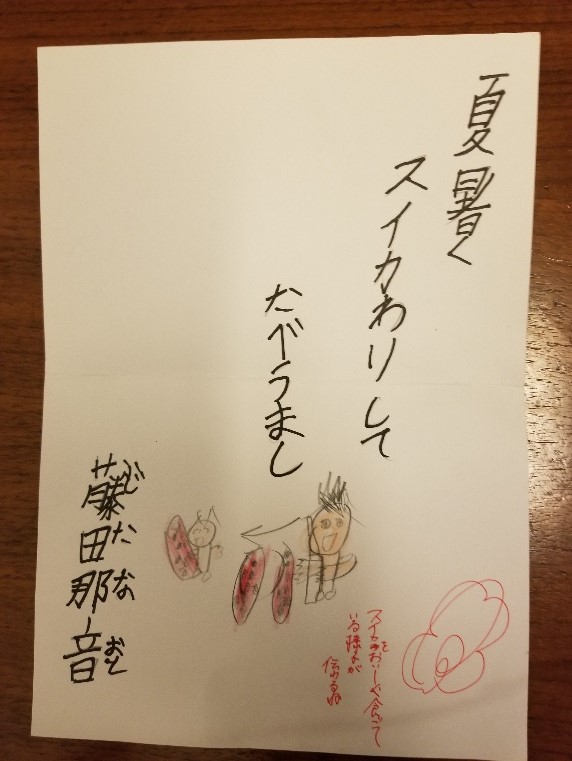 夏暑く
スイカわりして
たべうまし
藤田那音
ふじ た な おと
スイカをおいしく食べて
いる様子が
伝わるね